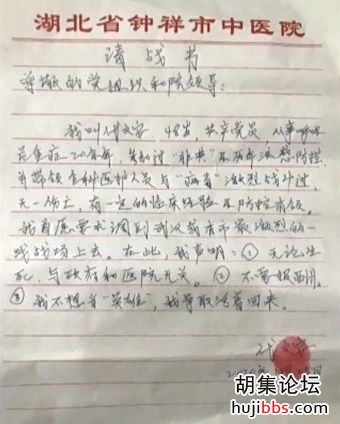 湖北省钟祥市中医院
请战书
尊敬的党组织和院领导:
我叫 48岁 共产党员 从事呼吸
危重症20多年,参加过"非典" 流感防控,
并带领全科医护人员与"病毒"激烈战斗过,
无一伤亡,有一定的临床经验和防控本领。
我自愿要求调到武汉或者市最激烈的一
线战场上去。在此,我声明:① 无论生
死,与政府和医院无关。② 不需报酬。
③ 我不想当"英雄",我争取活着回来。
胡集论坛
hujibbs.com